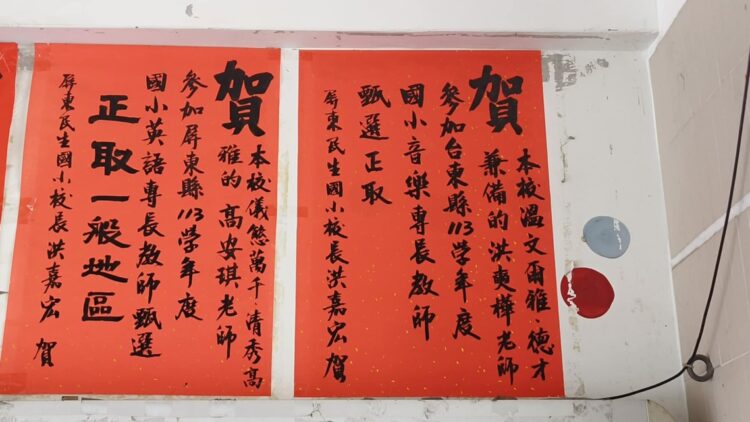 賀
本校溫文爾雅、德才
兼備的洪奭樺老師
參加台東縣113學年度
國小音樂專長教師
甄選正取
屏東民生國小校長洪嘉宏賀
賀
本校儀態萬千、清秀高
雅的高安琪老師
參加屏東縣113學年度
國小英語專長教師甄選
正取一般地區
屏東民生國小校長洪嘉宏賀